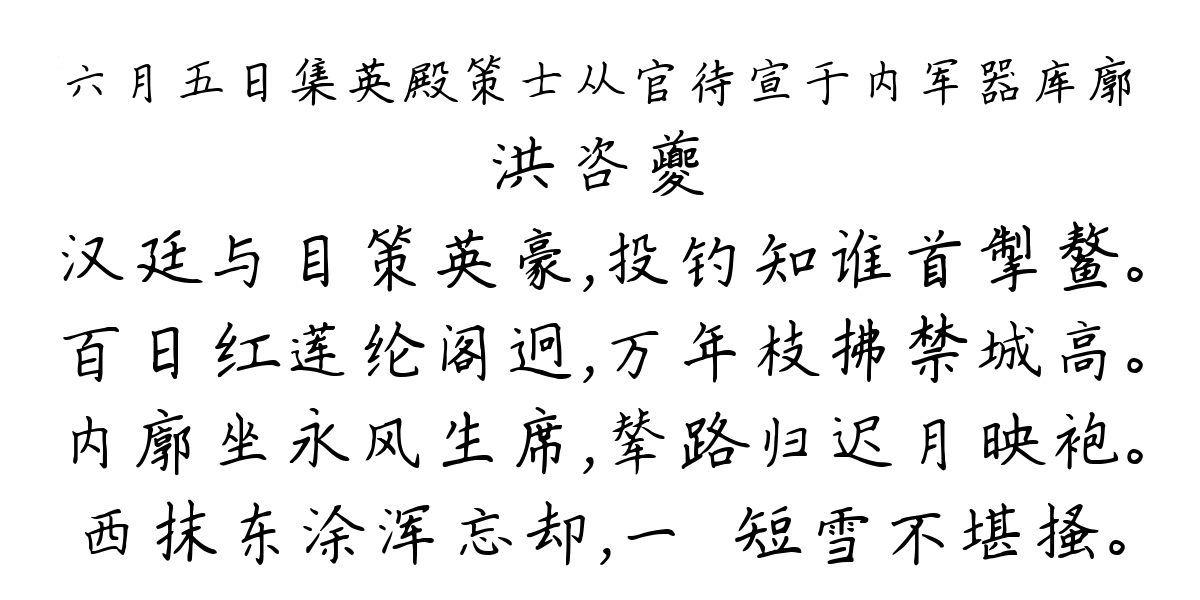 六月五日集英殿策士从官待宣于内军器库廓
洪咨夔
汉廷与目策英豪,投钓知谁首掣鳌。
百日红莲纶阁迥,万年枝拂禁城高。
内廓坐永风生席,辇路归迟月映袍。
西抹东涂浑忘却,一 短雪不堪搔。